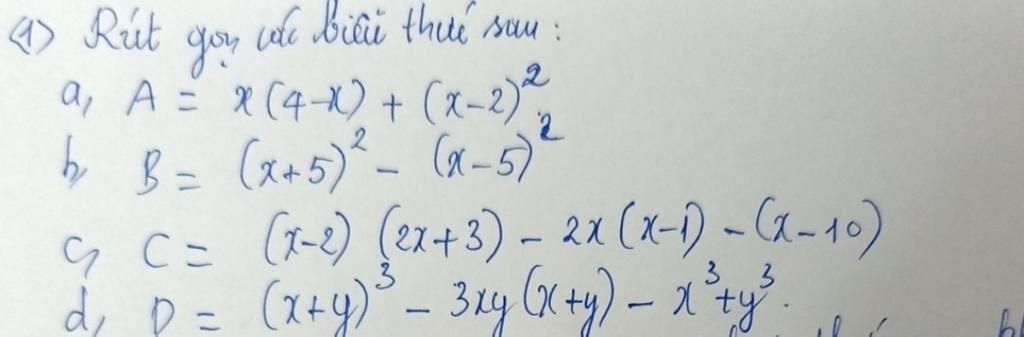 1) Rút gọn các biểu thức sau:
a, A = x(4-x) + (x-2)²
b, B = (x+5)² - (x-5)²
c, C = (x-2)(2x+3) - 2x(x-1) - (x-10)
d, D = (x+y)³ - 3xy(x+y) - x³+y³.